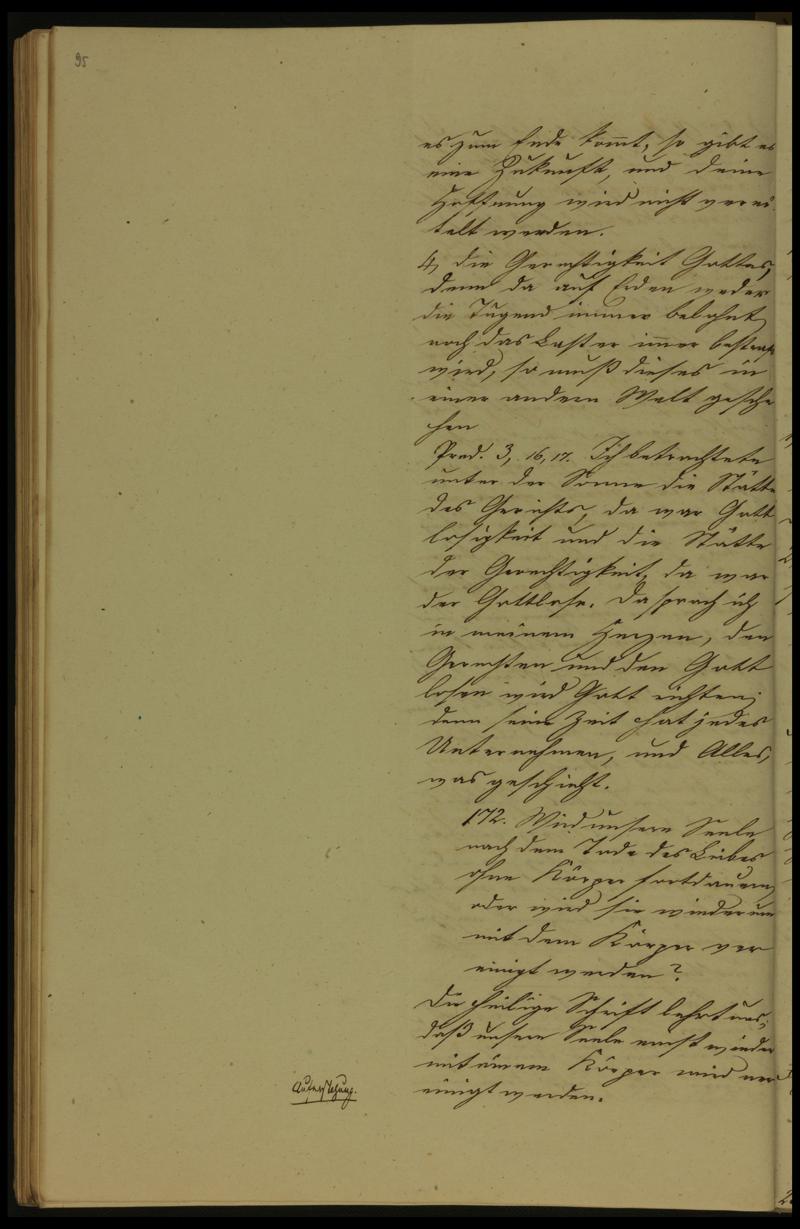 95
es zum Ende kom̅t, so gibt es
eine Zukunft, und deine
Hoffnung wird nicht verei
telt werden.
4, die Gerechtigkeit Gottes,
denn da auf Erden weder
die Tugend immer belohnt,
noch das Laster im̅er bestraft
wird, so muß dieses in
einer andern Welt gesche
hen
Pred. 3, 16, 17. Ich betrachtete
unter der Sonne die Stätte
des Gerichts, da war Gott
losigkeit und die Stätte
der Gerechtigkeit, da war
der Gottlose. Da sprach ich
in meinem Herzen, den
Gerechten und den Gott
losen wird Gott richten;
denn seine Zeit hat jedes
Unternehmen, und Alles,
was geschieht.
172. Wird unsere Seele
nach dem Tode des Leibes
ohne Körper fortdauern,
oder wird sie wiederum
mit dem Körper ver
einigt werden?
Die heilige Schrift lehrt uns,
daß unsere Seele einst wieder
mit einem Körper wird ver
einigt werden.
Auferstehung.